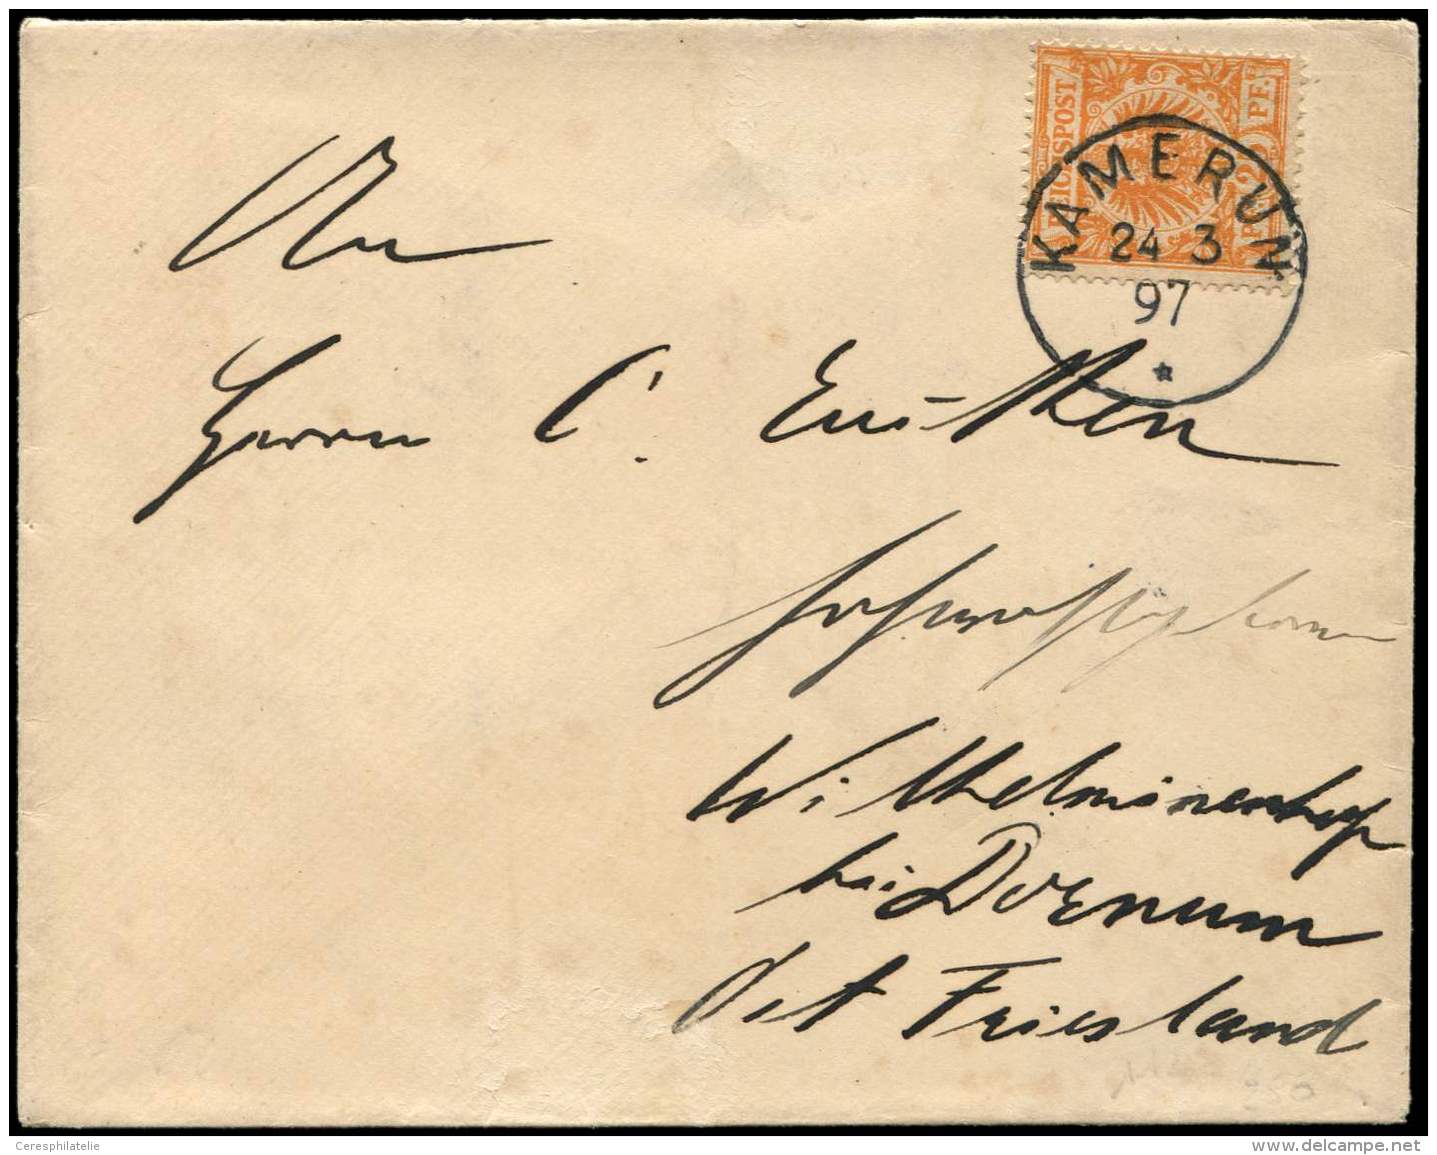 REICHSPOST 25 PF. PF.
KAMERUN
24 3
97
An
Herrn C.
Wilhelminenhof
bei Dornum
Ost Friesland
350
Ceresphilatelie
www.delcampe.net